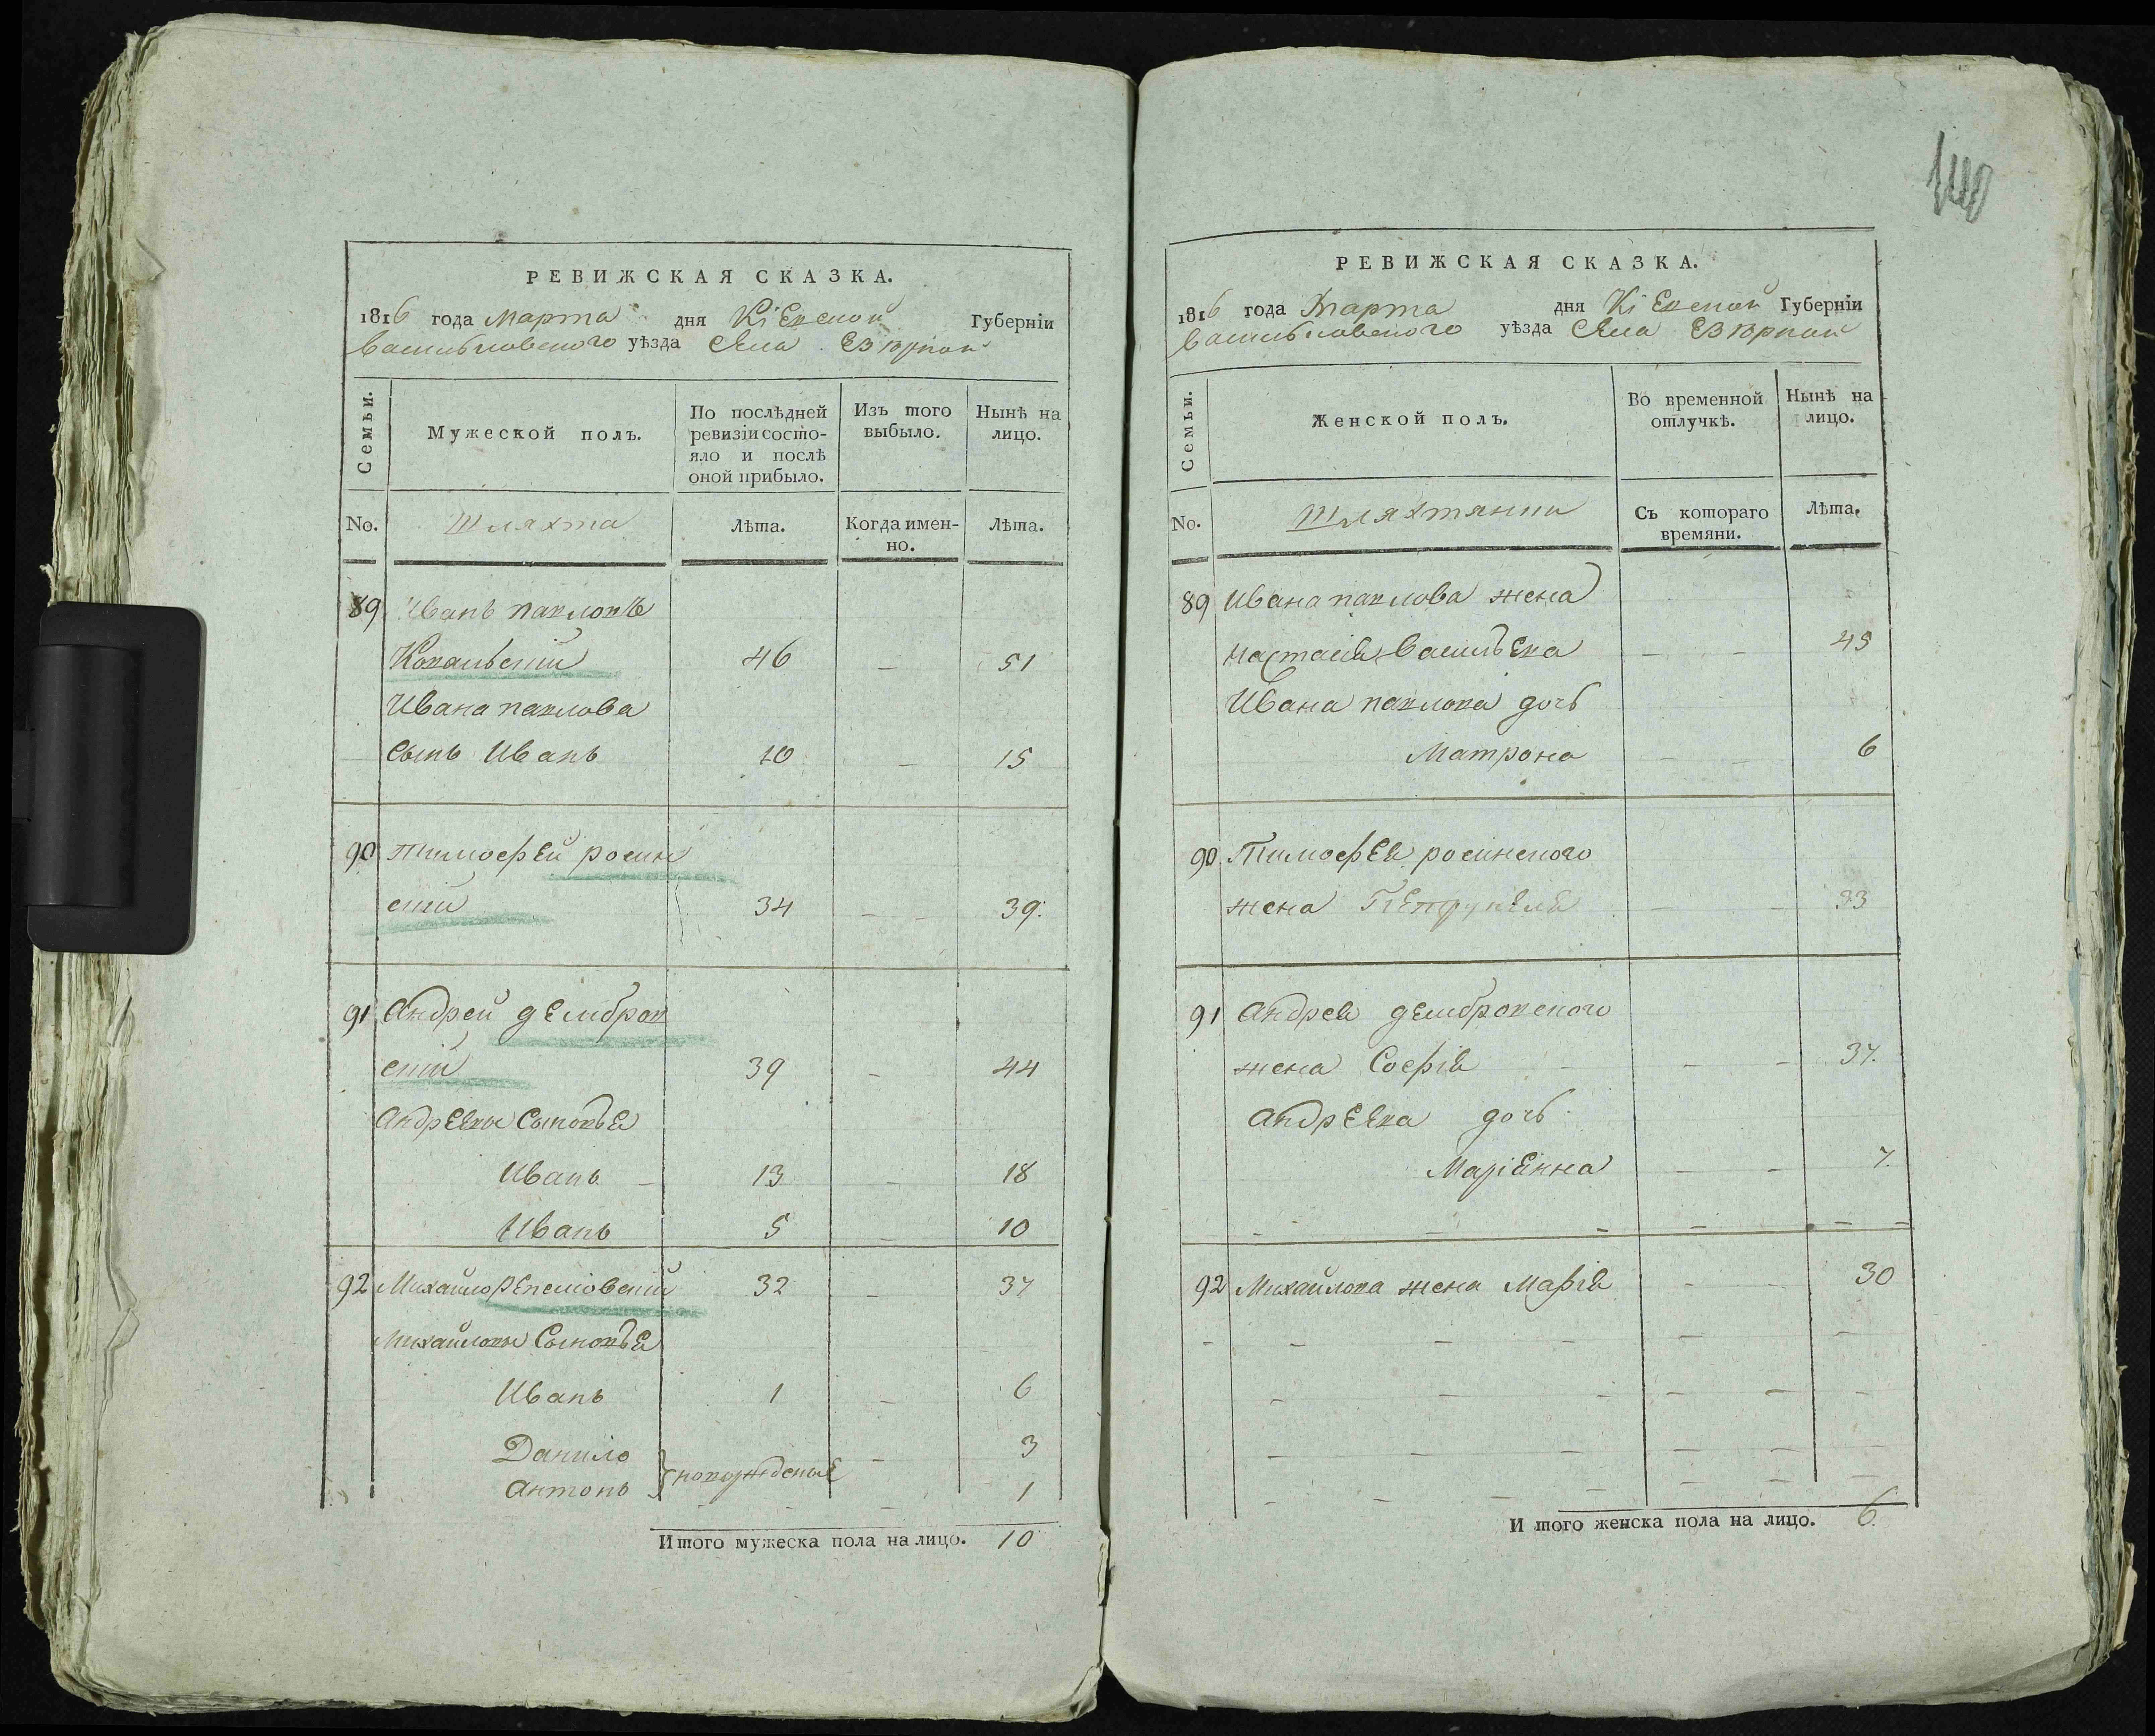 140
РЕВИЖСКАЯ СКАЗКА.
1816 года марта дня Кіевской Губерніи
Васильковского уѣзда Села
Семьи.
Мужеской полъ.
По послѣдней ревизіи состояло и послѣ оной прибыло.
Изъ того выбыло.
Нынѣ на лицо.
No.
Шляхта
Лѣта.
Когда именно.
Лѣта.
89 Иванъ павловъ
Ковальскій 46 — 51
Ивана павлова
Сынъ Иванъ 10 — 15
90 Тимофей росин
скій 34 — — 39.
91 Андрей дембров
скій 39 — 44
Андреевы Сыновья
Иванъ — 13 — 18
Иванъ 5 — 10
92 Михайло 32 — 37
Михайловы Сыновья
Иванъ 1 — 6
Данило — 3
Антонъ } новорожденые 1
Итого мужеска пола на лицо. 10
РЕВИЖСКАЯ СКАЗКА.
1816 года Марта дня Кіевской Губерніи
Васильковского уѣзда Села
Семьи.
Женской полъ.
Во временной отлучкѣ.
Нынѣ на лицо.
No.
Шляхтянки
Съ котораго времяни.
Лѣта.
89 Ивана павлова жена
настасія Васильева — — 45
Ивана павлова дочь
Матрона — — 6
90 Тимофея росинского
жена — — 33
91 Андрея дембровского
жена Софія — — 37.
Андреева дочь
Маріянна — — 7.
92 Михайлова жена Марія — — 30
Итого женска пола на лицо. 6.